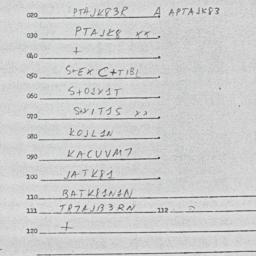 020 PTAJK83R A APTAJK83
030 PTAJK8 xx
040 +
050 S+EXC+TIBI
060 S+OJX1T
070 SXIT15 xx
080 KOJL1N
090 KACUVM7
100 JATK81
110 BATK81N1N
111 T87AJB3RN 112
120 +